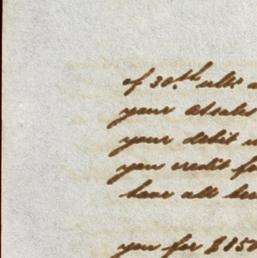 of 30th ulto
your
your debit
you credit
have all
you for $850